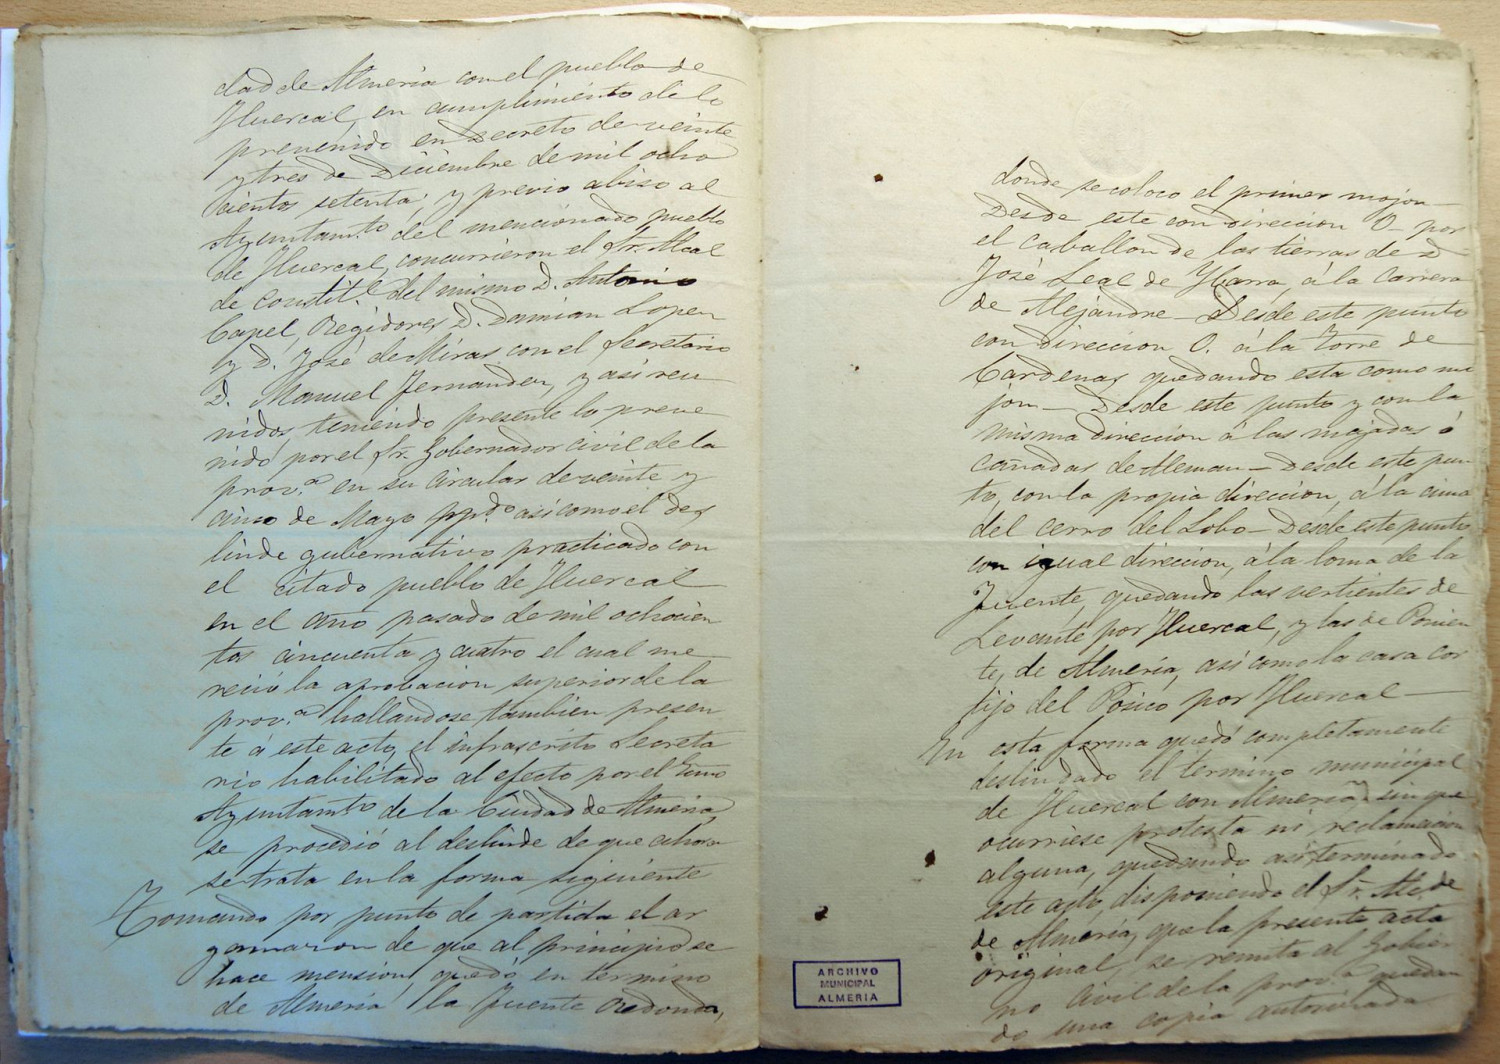 dad de Almeria con el pueblo de
Huercal, en cumplimiento de lo
prevenido en Decreto de veinte
y tres de Diciembre de mil ocho
cientos setenta, y previo abiso al
Ayuntam.to del mencionado pueblo
de Huercal, concurrieron el Sr. Alcal
de Constit.l del mismo D. Antonio
Capel, Regidores D. Damian Lopez
y D. José de Miras con el Secretario
D. Manuel Fernandez, y asi reu
nidos, teniendo presente lo preve
nido por el Sr. Gobernador civil de la
prov.a en su circular de veinte y
cinco de Mayo pp.do asi como el des
linde gubernativo practicado con
el citado pueblo de Huercal
en el año pasado de mil ochocien
tos cincuenta y cuatro el cual me
reció la aprobacion superior de la
prov.a hallandose tambien presen
te á este acto, el infrascrito Secreta
rio habilitado al efecto por el Exmo
Ayuntam.to de la Ciudad de Almeria,
se procedió al deslinde de que ahora
se trata en la forma siguiente
Tomando por punto de partida el ar
gamazon de que al principio se
hace mension, quedó en termino
de Almeria la Fuente Redonda,
donde se coloco el primer mojon
Desde este con direccion O. por
el caballon de las tierras de D.
José Leal de Ybarra, á la Carrera
de Alejandre — Desde este punto
con direccion O. á la torre de
Cardenas quedando esta como mo
jon — Desde este punto y con la
misma direccion á las majadas ó
cañadas de Aleman — Desde este pun
to, con la propia direccion, á la cima
del cerro del Lobo — Desde este punto
con igual direccion, á la loma de la
Fuente, quedando las vertientes de
Levante por Huercal, y las de Ponien
te, de Almeria, asi como la casa cor
tijo del Pósico por Huercal —
En esta forma quedó completamente
deslindado el termino municipal
de Huercal con Almeria sin que
ocurriese protesta ni reclamacion
alguna, quedando asi terminado
este acto, disponiendo el Sr. Alc.de
de Almeria, que la presente acta
original, se remita al Gobier
no Civil de la prov.a quedan
do una copia autorizada
ARCHIVO
MUNICIPAL
ALMERIA